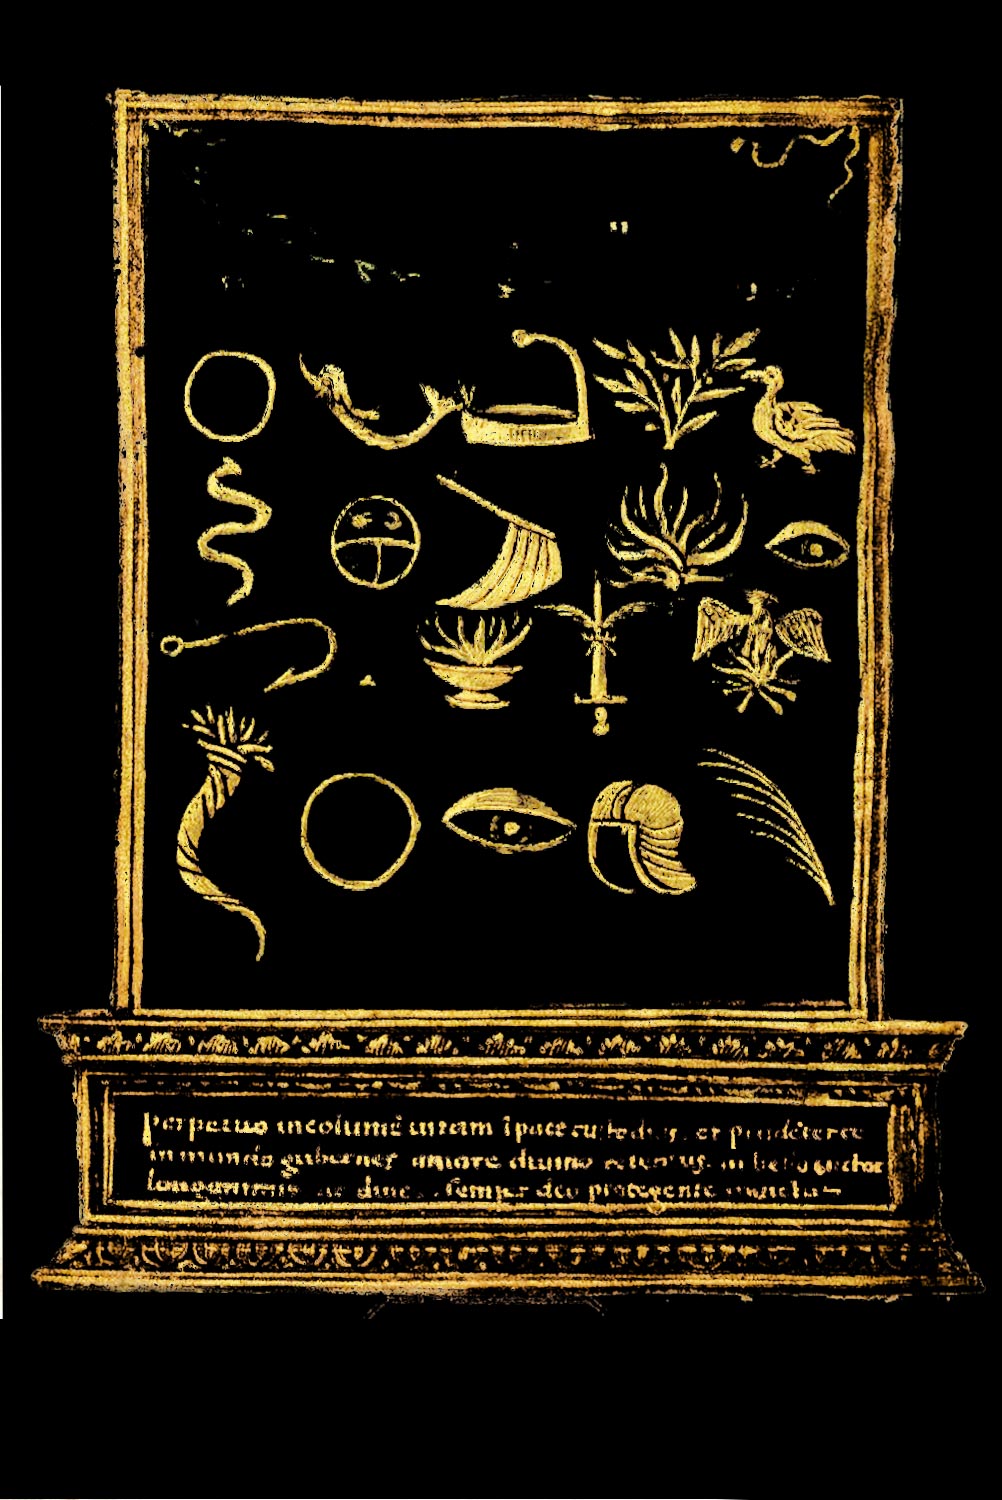 perpetuo incolumē uitam ī pace custodias, et prudēter ee
in mundo gubernes amore diuino in bello uictor
longanimis ac diues, semper deo protegente